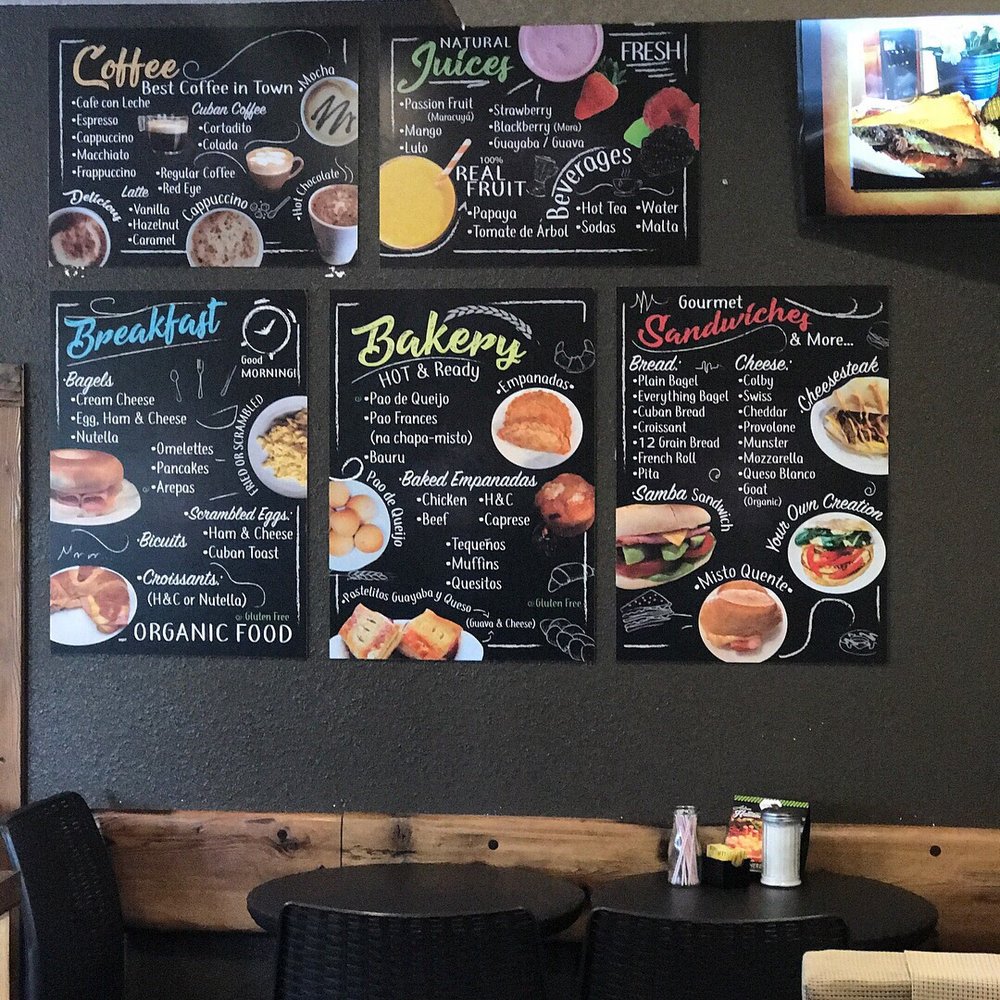 Coffee
Best Coffee in Town
•Mocha
•Cafe con Leche
•Espresso
•Cappuccino
•Macchiato
•Frappuccino
Cuban Coffee
•Cortadito
•Colada
•Regular Coffee
•Red Eye
•Hot Chocolate
Delicious
Latte
•Vanilla
•Hazelnut
•Caramel
Cappuccino
NATURAL
Juices
FRESH
•Passion Fruit
(Maracuyá)
•Mango
•Lulo
•Strawberry
•Blackberry (Mora)
•Guayaba / Guava
100%
REAL
FRUIT
•Papaya
•Tomate de Árbol
Beverages
•Hot Tea
•Sodas
•Water
•Malta
Breakfast
Good
MORNING!
•Bagels
•Cream Cheese
•Egg, Ham & Cheese
•Nutella
•Omelettes
•Pancakes
•Arepas
FRIED OR SCRAMBLED
•Scrambled Eggs:
•Ham & Cheese
•Cuban Toast
•Bicuits
•Croissants:
(H&C or Nutella)
Gluten Free
ORGANIC FOOD
Bakery
HOT & Ready
•Pao de Queijo
•Pao Frances
(na chapa-misto)
•Bauru
•Empanadas•
Pao de Queijo
Baked Empanadas
•Chicken
•Beef
•H&C
•Caprese
•Tequeños
•Muffins
•Quesitos
Gluten Free
•Pastelitos Guayaba y Queso
(Guava & Cheese)
Gourmet
Sandwiches
& More...
Bread:
•Plain Bagel
•Everything Bagel
•Cuban Bread
•Croissant
•12 Grain Bread
•French Roll
•Pita
Cheese:
•Colby
•Swiss
•Cheddar
•Provolone
•Munster
•Mozzarella
•Queso Blanco
•Goat
(Organic)
Cheesesteak
Samba Sandwich
Your Own Creation
•Misto Quente•